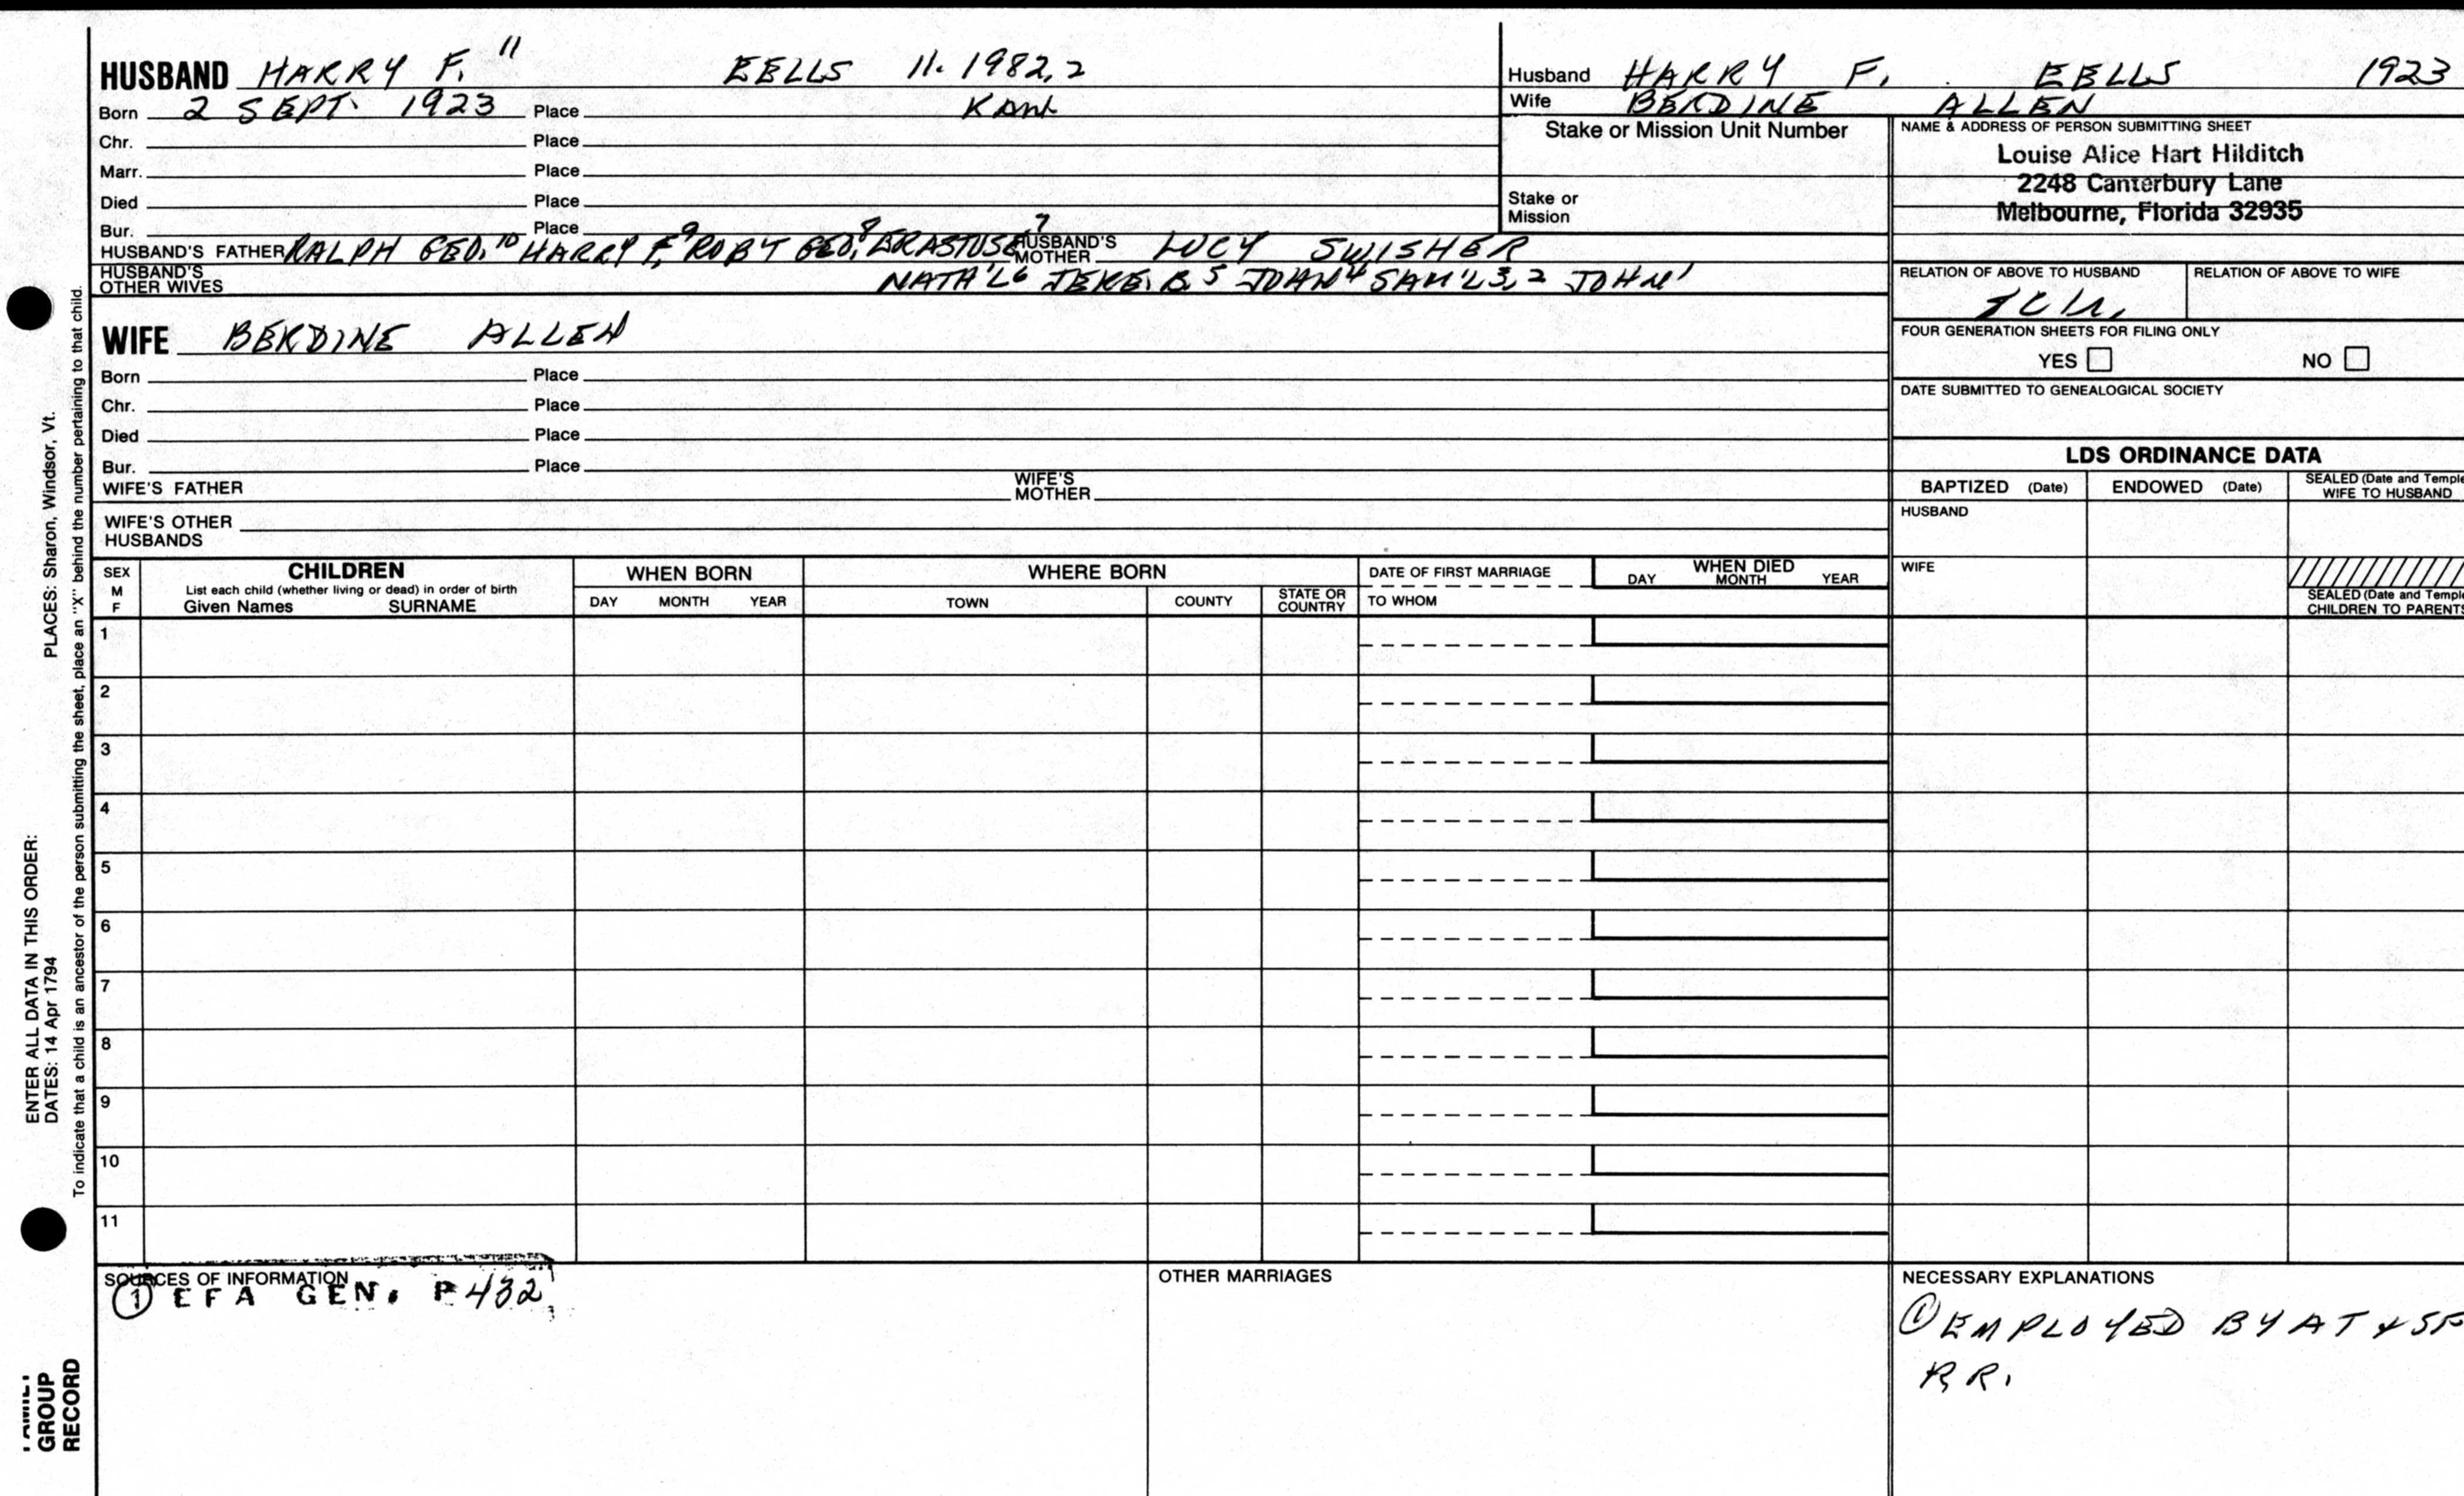 HUSBAND HARRY F. 11 EELLS 11. 1982,2
Born 2 SEPT. 1923 Place Kans
Chr. Place
Marr. Place
Died Place
Bur. Place
HUSBAND'S FATHER RALPH GEO,10 HARRY F,9 ROBY GEO,8 ERASTUS G7 HUSBAND'S MOTHER LUCY SWISHER
HUSBAND'S OTHER WIVES NATA'L6 JERE. B.5 JOHN4 SAM'L3,2 JOHN1
Husband HARRY F. EELLS 1923
Wife BERDINE ALLEN
Stake or Mission Unit Number
Stake or Mission
NAME & ADDRESS OF PERSON SUBMITTING SHEET
Louise Alice Hart Hilditch
2248 Canterbury Lane
Melbourne, Florida 32935
RELATION OF ABOVE TO HUSBAND RELATION OF ABOVE TO WIFE
FOUR GENERATION SHEETS FOR FILING ONLY
YES NO
DATE SUBMITTED TO GENEALOGICAL SOCIETY
WIFE BERDINE ALLEN
Born Place
Chr. Place
Died Place
Bur. Place
WIFE'S FATHER WIFE'S MOTHER
WIFE'S OTHER HUSBANDS
LDS ORDINANCE DATA
BAPTIZED (Date) ENDOWED (Date) SEALED (Date and Temple
WIFE TO HUSBAND
HUSBAND
WIFE
SEALED (Date and Temple
CHILDREN TO PARENTS
SEX M F
CHILDREN
List each child (whether living or dead) in order of birth
Given Names SURNAME
WHEN BORN
DAY MONTH YEAR
WHERE BORN
TOWN COUNTY STATE OR COUNTRY
DATE OF FIRST MARRIAGE
TO WHOM
WHEN DIED
DAY MONTH YEAR
1
2
3
4
5
6
7
8
9
10
11
SOURCES OF INFORMATION
① EFA GEN. P432
OTHER MARRIAGES
NECESSARY EXPLANATIONS
① EMPLOYED BY AT & SF
RR.
ENTER ALL DATA IN THIS ORDER:
DATES: 14 Apr 1794 PLACES: Sharon, Windsor, Vt.
To indicate that a child is an ancestor of the person submitting the sheet, place an "X" behind the number pertaining to that child.
FAMILY
GROUP
RECORD